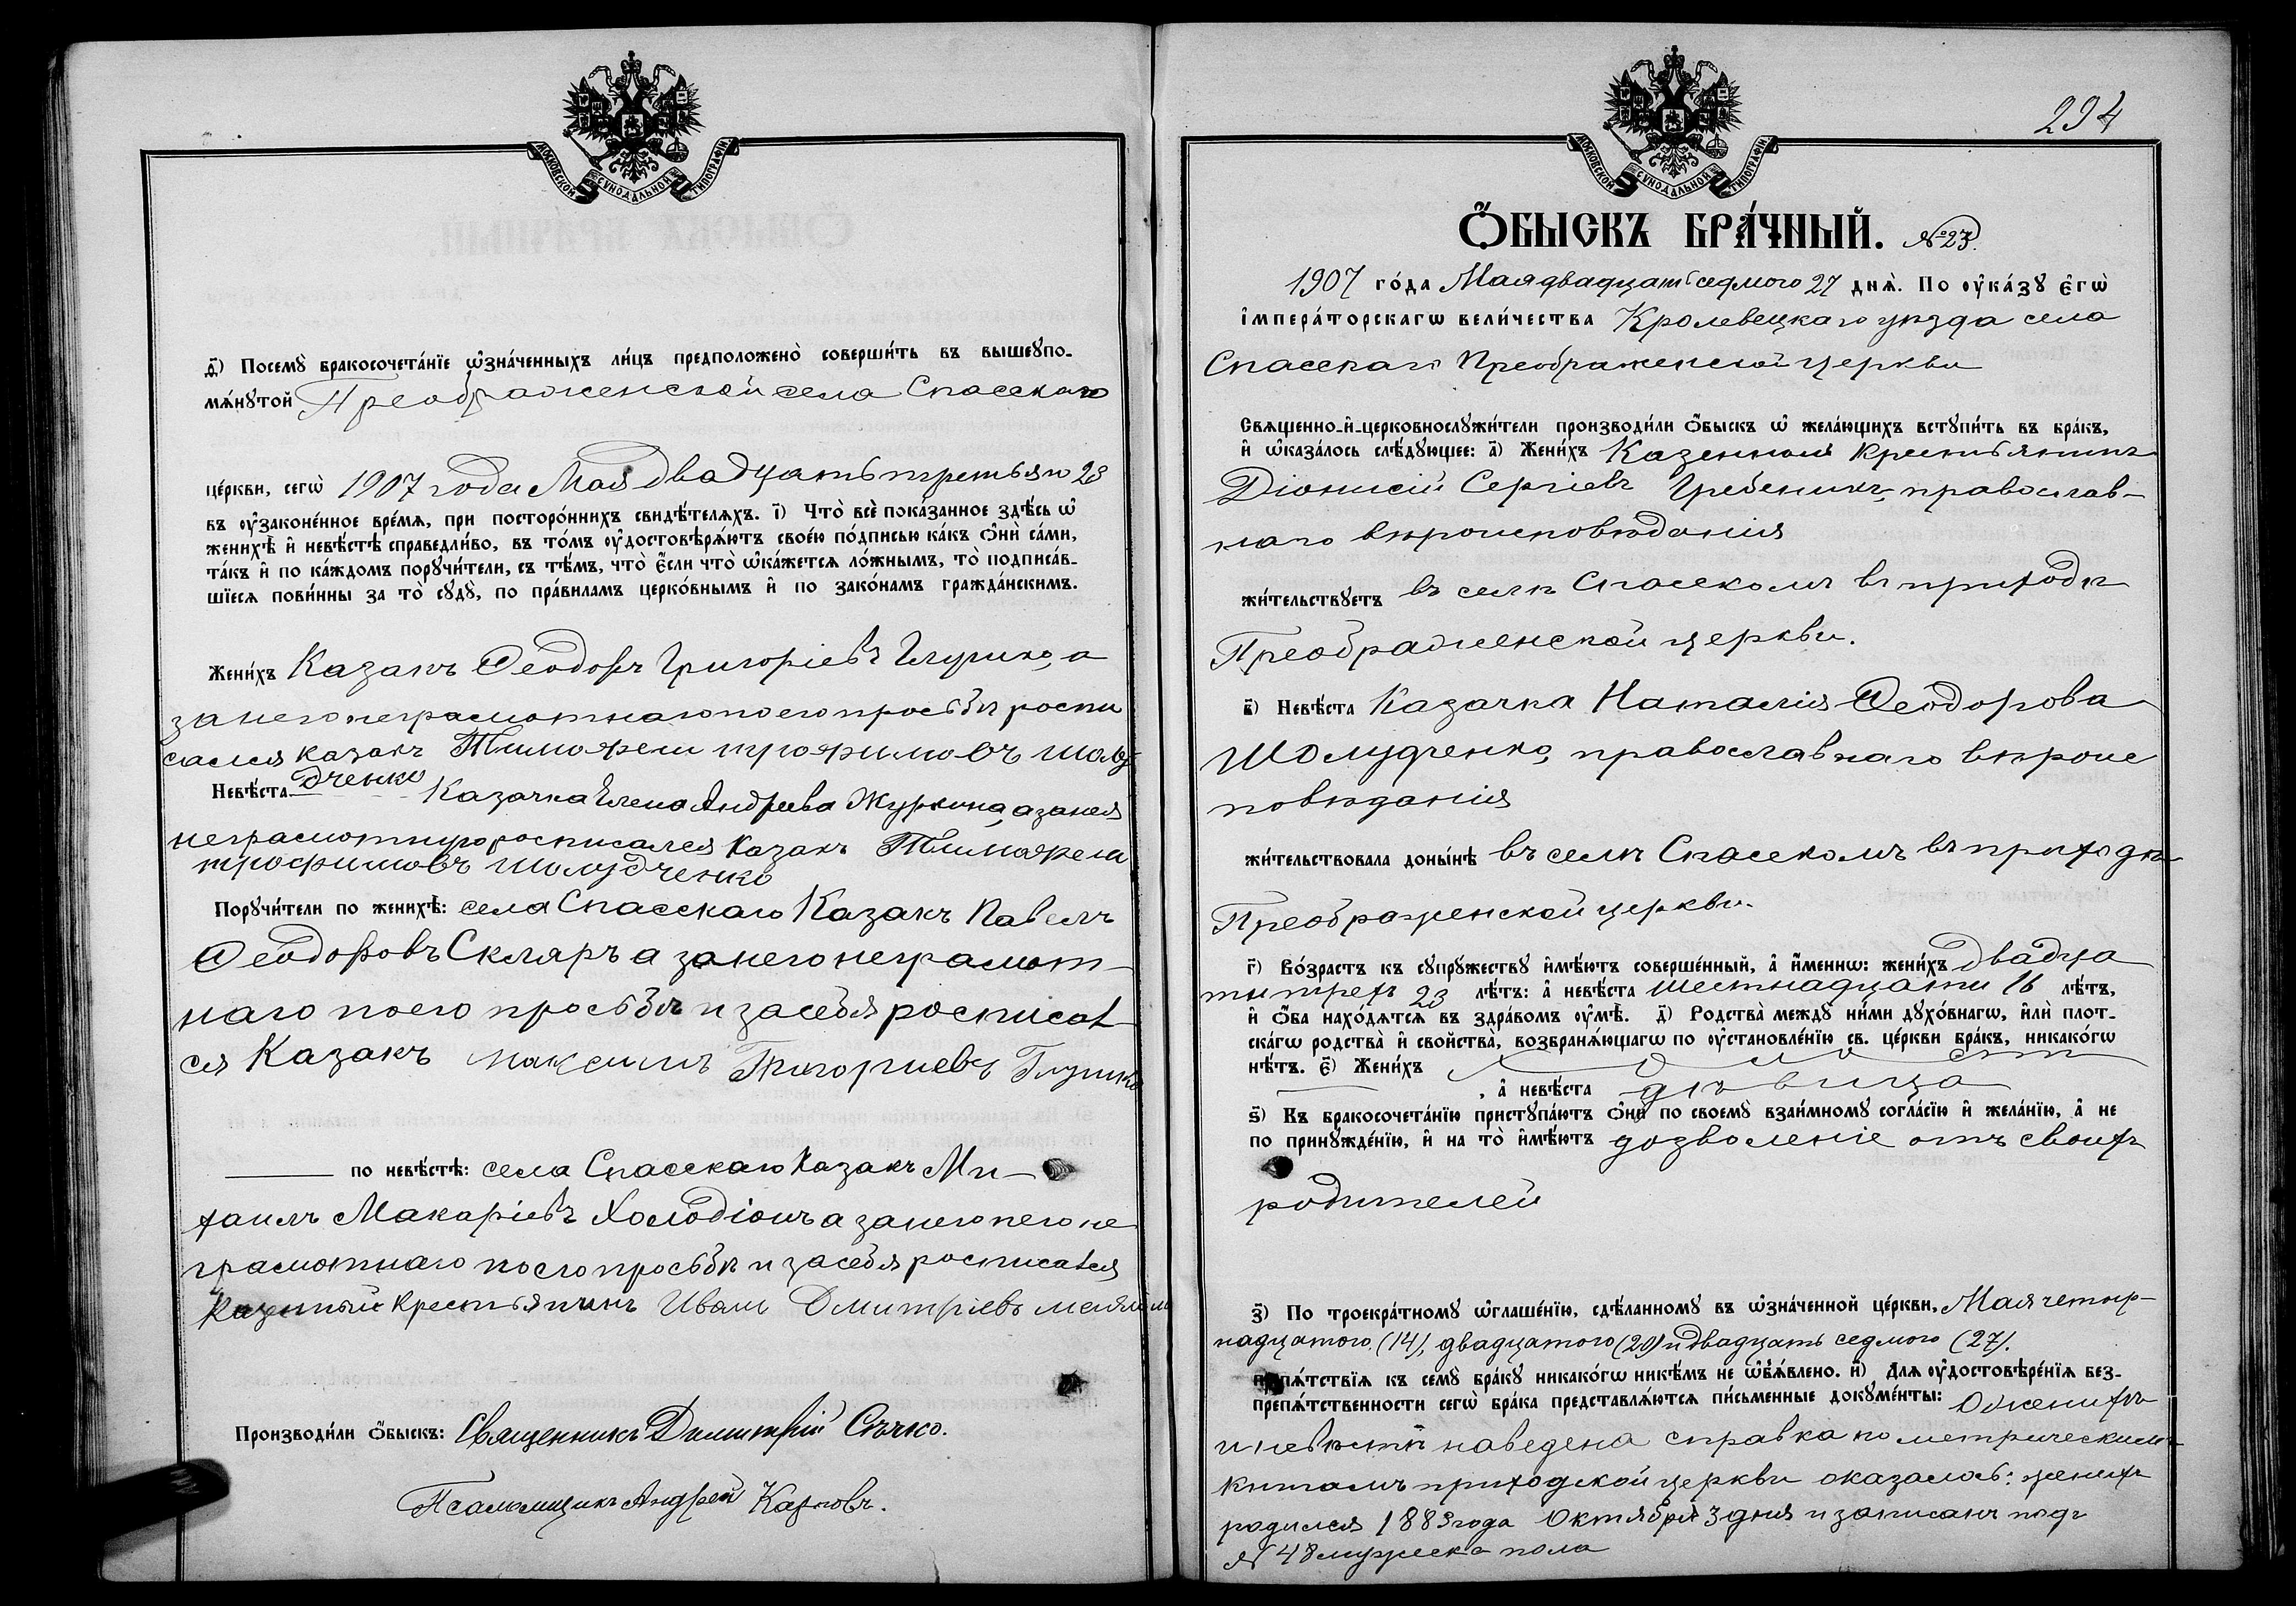 МОСКОВСКОЙ СѴНОДАЛЬНОЙ ТИПОГРАФІИ
д҃) Посемꙋ̀ бракосочета́нїе ѡ҆зна́ченныхъ ли́цъ предположено̀ соверши́ть въ вышеꙋпо-
мѧ́нꙋтой Преображенской села Спасскаго
це́ркви, сегѡ̀ 1907 года Мая двадцать третьяго 23
въ ᲂу҆законе́нное вре́мѧ, при посторо́ннихъ свидѣ́телѧхъ. і҃) Что̀ всѐ пока́занное здѣ́сь ѡ҆
женихѣ̀ и҆ невѣ́стѣ справедли́во, въ то́мъ ᲂу҆достовѣрѧ́ютъ свое́ю по́дписью ка́къ ѻ҆нѝ са́ми,
та́къ и҆ по ка́ждомъ порꙋчи́тели, съ тѣ́мъ, что̀ є҆́сли что̀ ѡ҆ка́жется ло́жнымъ, то̀ подписа́в-
шїесѧ пови́нны за то̀ сꙋдꙋ̀, по пра́виламъ церко́внымъ и҆ по зако́намъ гражда́нскимъ.
Жени́хъ Казакъ Ѳеодоръ Григоріевъ Глушко, а
за него неграмотнаго по его просьбѣ роспи
сался казакъ Тимофей трофимовъ шолу
дченко
Невѣ́ста Казачка Елена Андреева Журкина, а за нея
неграмотную росписался казакъ Тимофей
трофимовъ шолудченко
Порꙋчи́тели по женихѣ̀: села Спасскаго Казакъ Павелъ
Ѳеодоровъ Скляръ а за него неграмот-
наго по его просьбѣ и за себя росписал-
ся Казакъ максимъ Григориевъ Глушко
по невѣ́стѣ: села Спасскаго Казакъ Ми-
хаилъ Макаріевъ Холодіонъ а за него него не
грамотнаго по его просьбѣ и за себя росписался
Казенный крестьянинъ Иванъ Дмитріевъ
Производи́ли ѻ҆́быскъ: Священникъ Димитрій Сѣчко.
Псаломщикъ Андрей Карповъ.
294
МОСКОВСКОЙ СѴНОДАЛЬНОЙ ТИПОГРАФІИ
Ѻ҆́БЫСКЪ БРА́ЧНЫЙ. № 23.
1907 го́да Мая двадцать седмого 27 днѧ̀. По ᲂу҆ка́зꙋ є҆гѡ̀
і҆мпера́торскагѡ вели́чества Кролевецкаго уѣзда села
Спасскаго Преображенской церкви
Свѧщенно-и҆-церковнослꙋжи́тели производи́ли ѻ҆́быскъ ѡ҆ жела́ющихъ встꙋпи́ть въ бра́къ,
и҆ ѡ҆каза́лось слѣ́дꙋющее: а҃) Жени́хъ Казенный крестьянинъ
Діонисій Сергіевъ Гребеникъ, православ-
наго вѣроисповѣданія
жи́тельствꙋетъ въ селѣ Спасскомъ въ приходѣ
Преображенской церкви.
в҃) Невѣ́ста Казачка Наталія Ѳеодорова
Шолудченко, православнаго вѣроис
повѣданія
жи́тельствовала доны́нѣ въ селѣ Спасскомъ въ приходѣ
Преображенской церкви.
г҃) Во́зрастъ къ сꙋпрꙋ́жествꙋ и҆мѣ́ютъ соверше́нный, а҆ и҆́менно: жени́хъ двадца
ти трехъ 23 лѣ́тъ: а҆ невѣ́ста шестнадцати 16 лѣ́тъ,
и҆ ѻ҆́ба нахо́дѧтсѧ въ здра́вомъ ᲂу҆мѣ̀. д҃) Родства̀ междꙋ̀ ни́ми дꙋхо́внагѡ, и҆лѝ плот-
ска́гѡ родства̀ и҆ сво́йства̀, возбранѧ́ющагѡ по ᲂу҆становле́нїю св. це́ркви бра́къ, никако́гѡ
нѣ́тъ. є҃) Жени́хъ холостъ
, а҆ невѣ́ста дѣвица
ѕ҃) Къ бракосочета́нїю пристꙋпа́ютъ ѻ҆нѝ по своемꙋ̀ взаи́мномꙋ согла́сїю и҆ жела́нїю, а҆ не
по принꙋжде́нїю, и҆ на то̀ и҆мѣ́ютъ дозволеніе отъ своихъ
родителей
з҃) По троекра́тномꙋ ѡ҆глаше́нїю, сдѣ́ланномꙋ въ ѡ҆зна́ченной це́ркви, Мая четыр-
надцатого (14), двадцатого (20) и двадцать седмого (27).
препѧ́тствїѧ къ семꙋ̀ бра́кꙋ никако́гѡ никѣ́мъ не ѡ҆б̾ѧ́влено. и҃) Длѧ ᲂу҆достовѣре́нїѧ без-
препѧ́тственности сегѡ̀ бра́ка представлѧ́ютсѧ пи́сьменные докꙋме́нты: О женихѣ
и невѣстѣ наведена справка по метрическимъ
книгамъ приходской церкви оказалось: женихъ
родился 1883 года Октября 3 дня и записанъ подъ
№ 48 мужеска пола